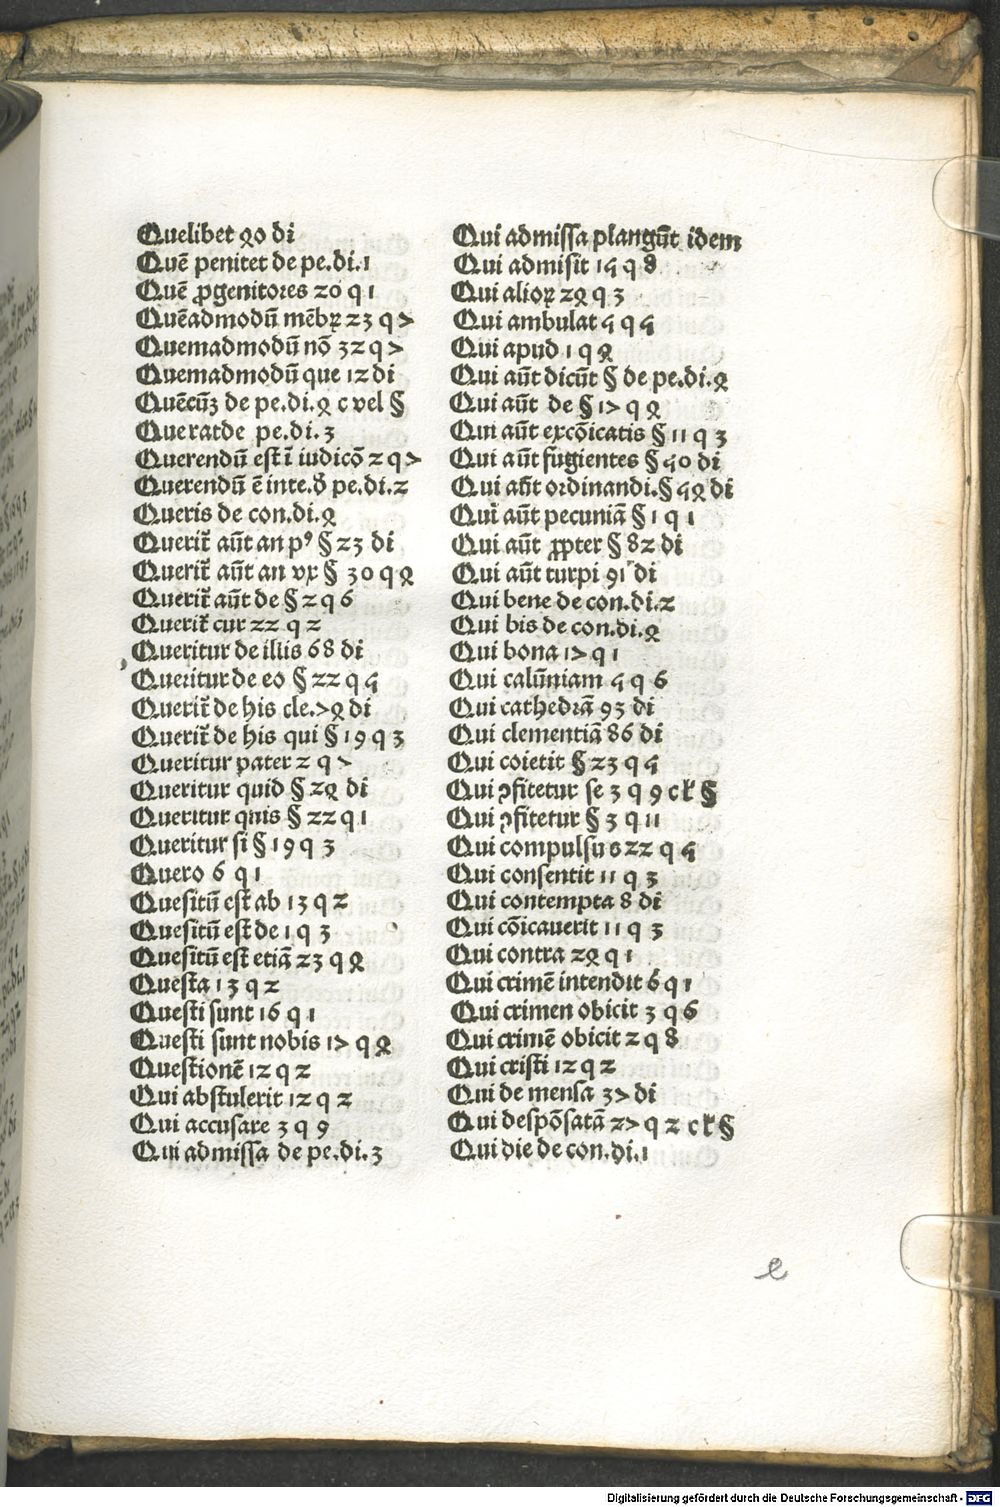 Quelibet 40 di
Quē penitet de pe.di.1
Quē ꝓgenitores 20 q 1
Quēadmodū mēbꝝ 23 q 7
Quemadmodū nō 32 q 7
Quemadmodū que 12 di
Quēcūꝫ de pe.di.4 c vel §
Queratde pe.di.3
Querendū est ī iudicō 2 q 7
Querendū ē inte.ð pe.di.2
Queris de con.di.4
Querit̄ aūt an pꝰ § 23 di
Querit̄ aūt an vx § 30 q 4
Querit̄ aūt de § 2 q 6
Querit̄ cur 22 q 2
Queritur de illis 68 di
Queritur de eo § 22 q 5
Querit̄ de his cle.74 di
Querit̄ de his qui § 19 q 3
Queritur pater 2 q 7
Queritur quid § 24 di
Queritur quis § 22 q 1
Queritur si § 19 q 3
Quero 6 q 1
Quesitū est ab 13 q 2
Quesitū est de 1 q 3
Quesitū est etiā 23 q 4
Questa 13 q 2
Questi sunt 16 q 1
Questi sunt nobis 17 q 4
Questionē 12 q 2
Qui abstulerit 12 q 2
Qui accusare 3 q 9
Qui admissa de pe.di.3
Qui admissa plangūt idem
Qui admisit 15 q 8
Qui alioꝝ 24 q 3
Qui ambulat 5 q 5
Qui apud 1 q 4
Qui aūt dicūt § de pe.di.4
Qui aūt de § 17 q 4
Qui aūt excōicatis § 11 q 3
Qui aūt fugientes § 50 di
Qui aūt ordinandi.§ 54 di
Qui aūt pecuniā § 1 q 1
Qui aūt ꝓpter § 82 di
Qui aūt turpi 91 di
Qui bene de con.di.2
Qui bis de con.di.4
Qui bona 17 q 1
Qui calūniam 5 q 6
Qui cathedrā 93 di
Qui clementiā 86 di
Qui coietit § 23 q 5
Qui ꝯfitetur se 3 q 9 c ł §
Qui ꝯfitetur § 3 q 11
Qui compulsus 22 q 5
Qui consentit 11 q 3
Qui contempta 8 di
Qui cōicauerit 11 q 3
Qui contra 24 q 1
Qui crimē intendit 6 q 1
Qui crimen obicit 3 q 6
Qui crimē obicit 2 q 8
Qui cristi 12 q 2
Qui de mensa 37 di
Qui despōsatā 27 q 2 c ł §
Qui die de con.di.1
e
Digitalisierung gefördert durch die Deutsche Forschungsgemeinschaft - DFG